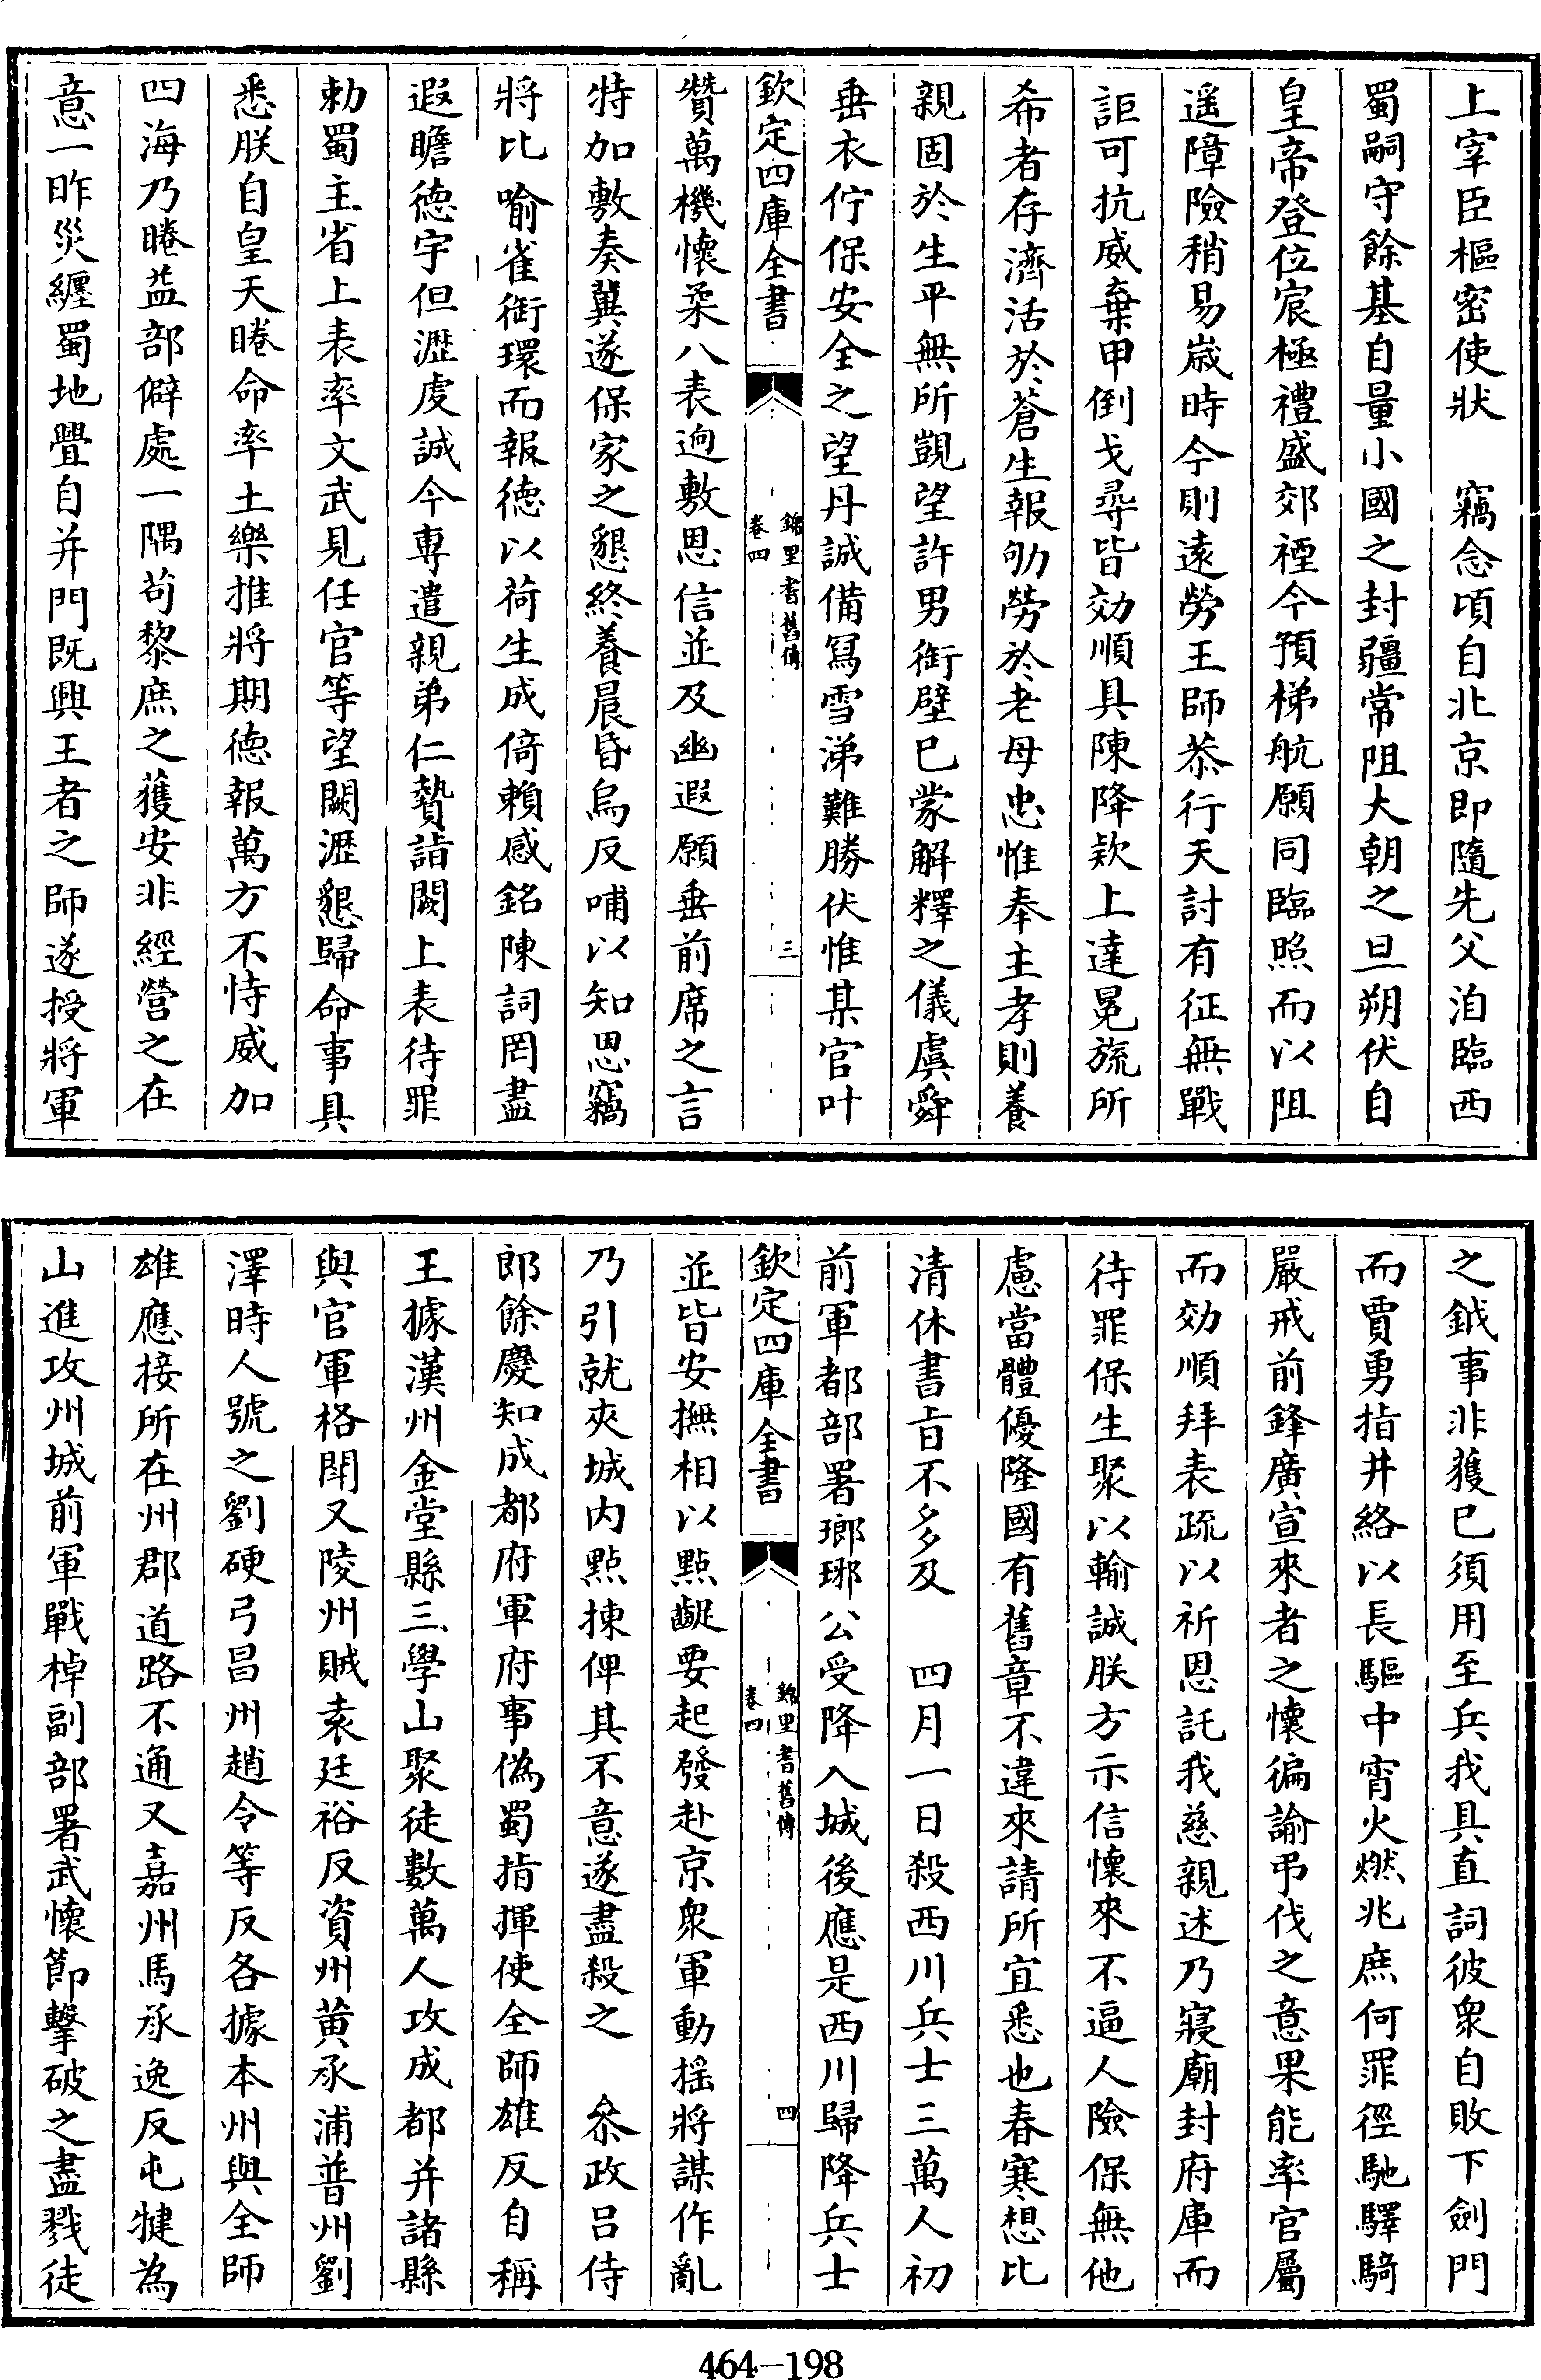 上宰臣樞密使狀　竊念頃自北京即隨先父洎臨西
蜀嗣守餘基自量小國之封疆常阻大朝之旦朔伏自
皇帝登位宸極禮盛郊禋今預梯航願同臨照而以阻
遥障險稍易歲時今則遠勞王師恭行天討有征無戰
詎可抗威棄甲倒戈尋皆効順具陳降欵上達冕旒所
希者存濟活於蒼生報劬勞於老母忠惟奉主孝則養
親固於生平無所覬望許男銜璧已蒙解釋之儀虞舜
垂衣佇保安全之望丹誠備冩雪涕難勝伏惟某官叶
欽定四庫全書
錦里耆舊傳
卷四
三
贊萬機懷柔八表逈敷恩信並及幽遐願垂前席之言
特加敷奏冀遂保家之懇終養晨昏烏反哺以知恩竊
將比喻雀銜環而報徳以荷生成倚賴感銘陳詞罔盡
遐瞻徳宇但瀝虔誠今専遣親弟仁贄詣闕上表待罪
勅蜀主省上表率文武見任官等望闕瀝懇歸命事具
悉朕自皇天睠命率土樂推將期徳報萬方不恃威加
四海乃睠益部僻處一隅苟黎庶之獲安非經營之在
意一昨災纒蜀地舋自并門既興王者之師遂授將軍
之鉞事非獲已須用至兵我具直詞彼衆自敗下劍門
而賈勇指井絡以長驅中宵火燃兆庶何罪徑馳驛騎
嚴戒前鋒廣宣來者之懷徧諭弔伐之意果能率官屬
而効順拜表疏以祈恩託我慈親述乃寢廟封府庫而
待罪保生聚以輸誠朕方示信懷來不逼人險保無他
慮當體優隆國有舊章不違來請所宜悉也春寒想比
清休書㫖不多及　四月一日殺西川兵士三萬人初
前軍都部署瑯琊公受降入城後應是西川歸降兵士
欽定四庫全書
錦里耆舊傳
卷四
四
並皆安撫相以點齪要起發赴京衆軍動揺將謀作亂
乃引就夾城内點揀俾其不意遂盡殺之　叅政吕侍
郎餘慶知成都府軍府事偽蜀指揮使全師雄反自稱
王據漢州金堂縣三學山聚徒數萬人攻成都并諸縣
與官軍格鬭又陵州賊袁廷裕反資州黄承浦普州劉
澤時人號之劉硬弓昌州趙令等反各據本州與全師
雄應接所在州郡道路不通又嘉州馬承逸反屯犍為
山進攻州城前軍戰棹副部署武懷節擊破之盡戮徒
464—198